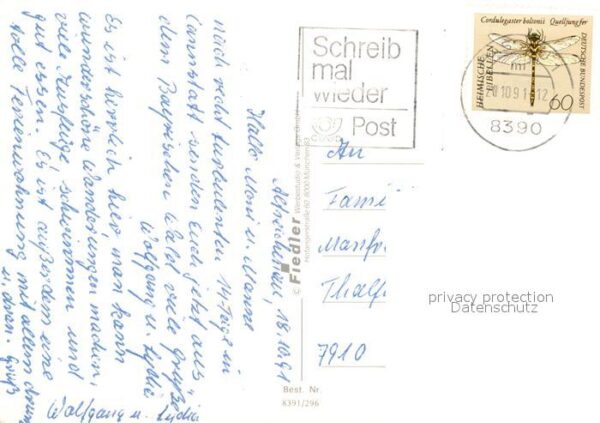 Altreichenau, 18.10.91
Hallo Moni u. Manne
nach recht turbulenten 14 Tage in
Cannstatt senden Euch jetzt aus
dem Bayrischen Wald viele Grüße
Wolfgang u. Lydia
Es ist herrlich hier man kann
wunderschöne Wanderungen machen,
viele Ausflüge, schwimmen und
gut essen. Es ist außerdem eine
tolle Ferienwohnung mit allem drum
u. dran. Grüße
Wolfgang u. Lydia
© Fiedler Werbestudio & Verlags GmbH
8000 München 83
Schreib
mal
wieder
Post
Cordulegaster boltonii Quelljungfer
HEIMISCHE
LIBELLEN
DEUTSCHE BUNDESPOST
60
10.91
12
8390
An
Fami
Manfr
Thalf
7910
privacy protection
Datenschutz
Best. Nr.
8391/296